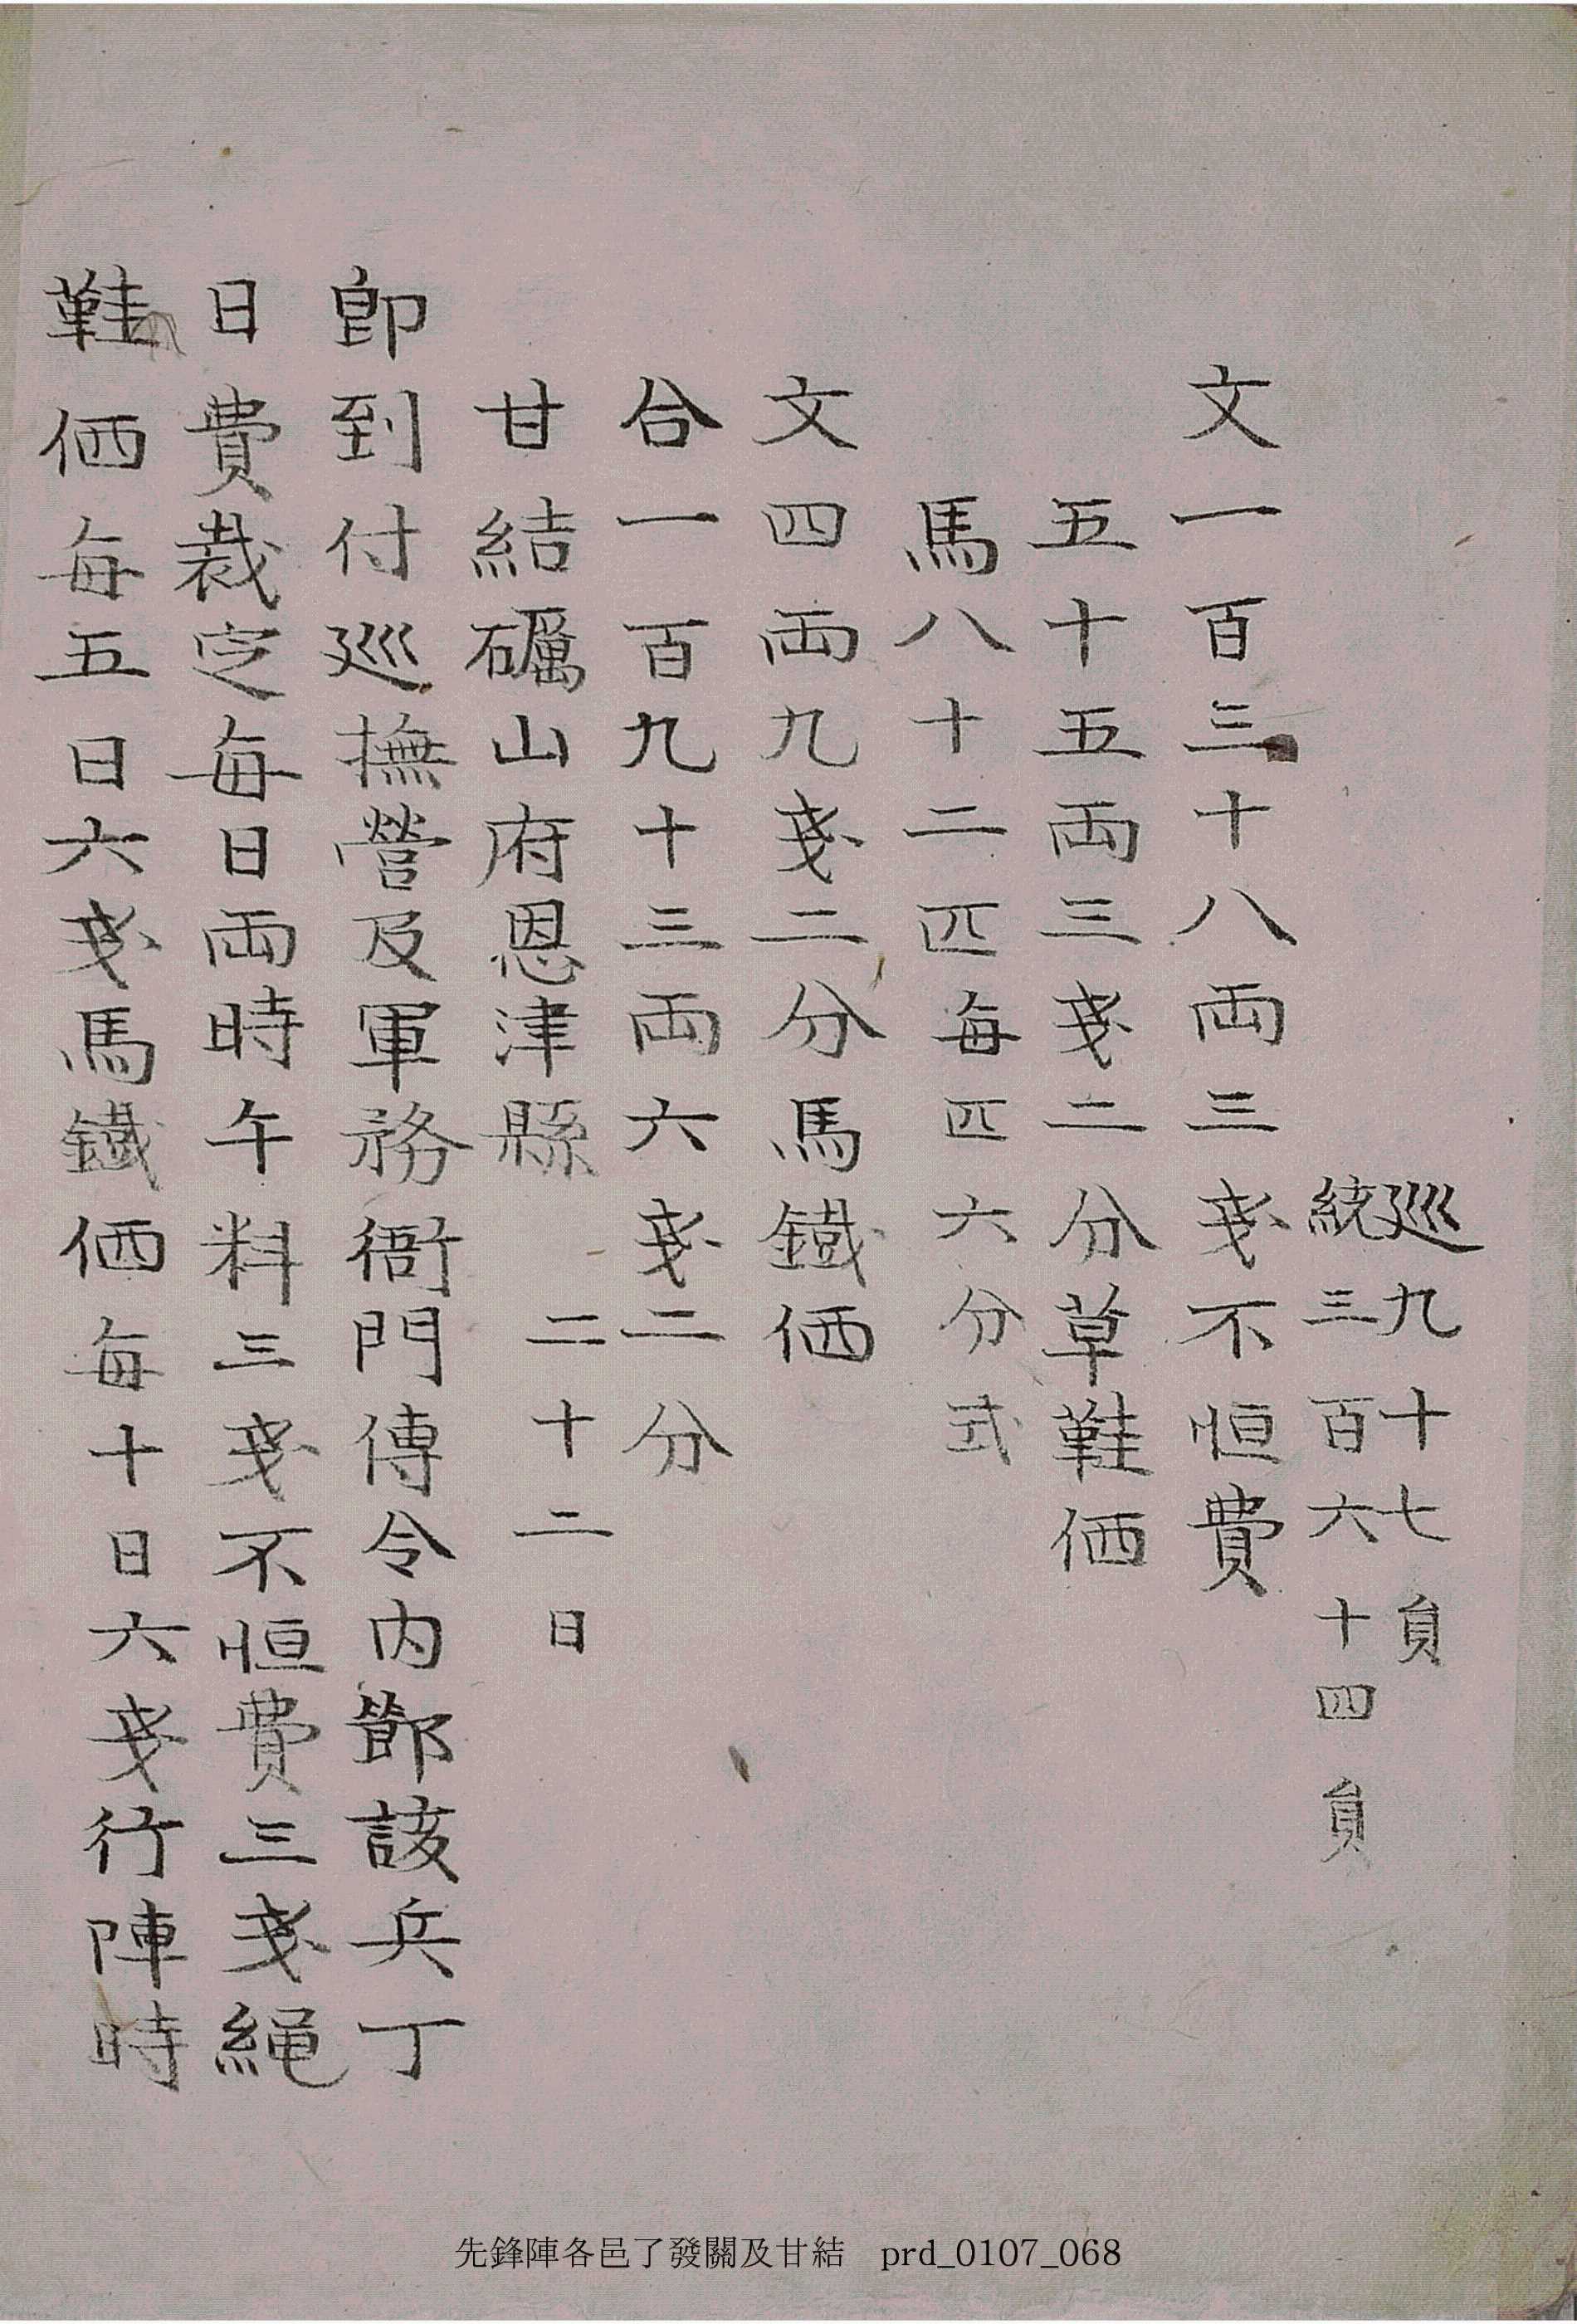 巡九十七員
統三百六十四員
文一百三十八両三戔不恒費
五十五両三戔二分草鞋価
馬八十二匹每匹六分式
文四両九戔二分馬鐵価
合一百九十三両六戔二分
甘結礪山府恩津縣 二十二日
卽到付巡撫營及軍務衙門傳令內節該兵丁
日費裁定每日両時午料三戔不恒費三戔繩
鞋価每五日六戔馬鐵価每十日六戔行陣時
先鋒陣各邑了發關及甘結 prd_0107_068